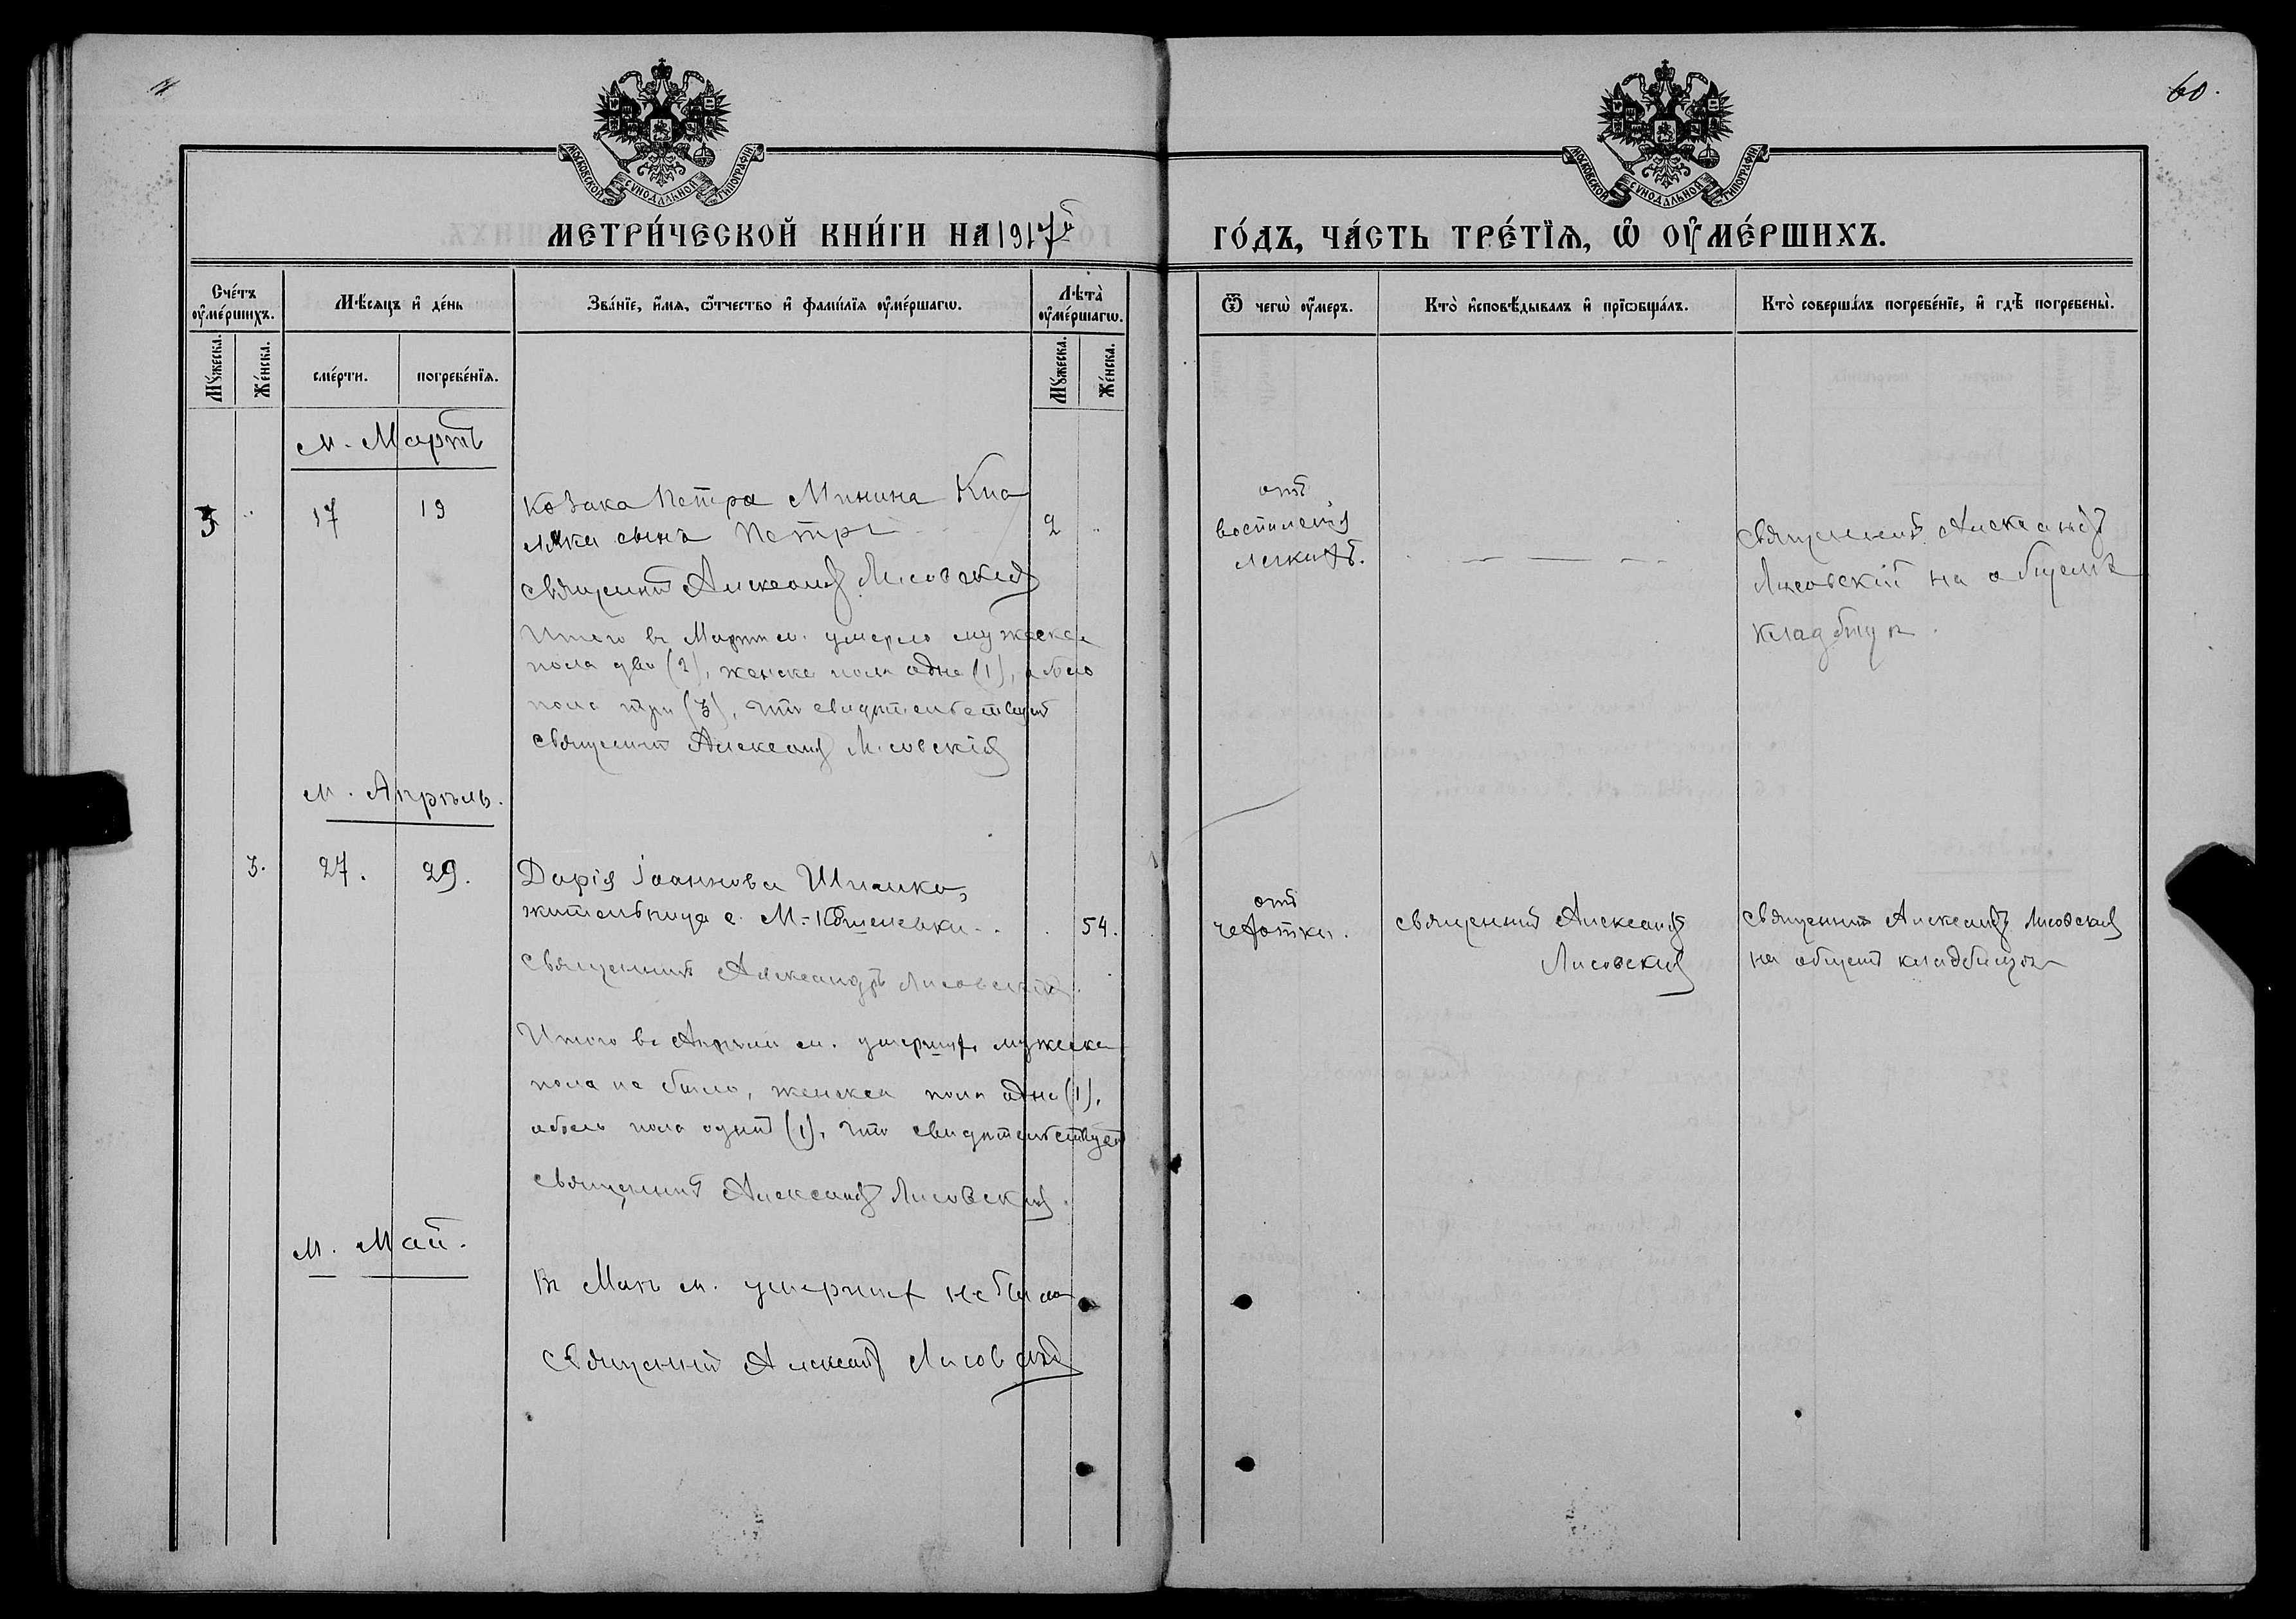 60.
МОСКОВСКОЙ СѴНОДАЛЬНОЙ ТИПОГРАФІИ
МОСКОВСКОЙ СѴНОДАЛЬНОЙ ТИПОГРАФІИ
МЕТРИ́ЧЕСКОЙ КНИ́ГИ НА 1917й
ГО́ДЪ, ЧА́СТЬ ТРЕ́ТІѦ, Ѡ ОУМЕ́РШИХЪ.
Сче́тъ оуме́ршихъ.
Мѣ́сяцъ и де́нь
Зва́нїе, и́мя, ѿтчество и фами́лїя оуме́ршагѡ.
Лѣта̀ оуме́ршагѡ.
Ѿ чегѡ̀ оу́меръ.
Кто̀ исповѣ́дывалъ и прїѡбща́лъ.
Кто̀ соверша́лъ погребе́нїе, и гдѣ̀ погребены̀.
Му́жеска.
Же́нска.
сме́рти.
погребе́нїя.
Му́жеска.
Же́нска.
м. Мартъ
3 " 17 19
Козака Петра Минина
сынъ Петръ
2 "
отъ
воспаленія
легкихъ.
Священникъ Александръ
Лисовскій на общемъ
кладбищѣ.
Священникъ Александръ Лисовскій
Итого въ Мартѣ м. умерло мужеска
пола два (2), женска пола одна (1), обоего
пола три (3), что свидѣтельствуетъ
Священникъ Александръ Лисовскій
м. Апрѣль.
3. 27. 29.
Дарія Іоаннова
жительница с. М.-
54.
отъ
чахотки.
Священникъ Александръ
Лисовскій
Священникъ Александръ Лисовскій
на общемъ кладбищѣ
Священникъ Александръ Лисовскій.
Итого въ Апрѣлѣ м. умершихъ мужеска
пола не было, женска пола одна (1),
обоего пола одинъ (1), что свидѣтельствуетъ
Священникъ Александръ Лисовскій.
м. Май.
Въ Маѣ м. умершихъ не было
Священникъ Александръ Лисовскій